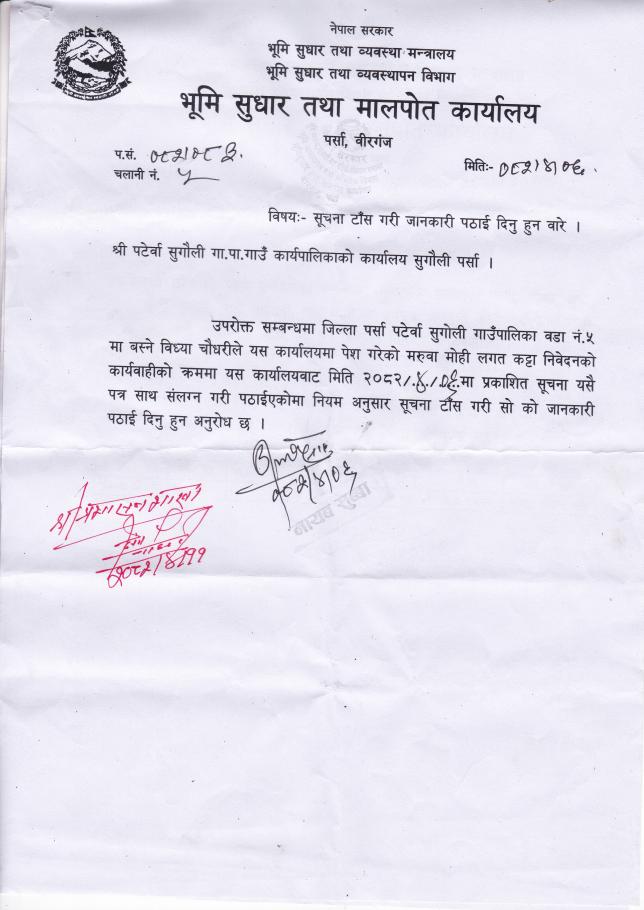 नेपाल सरकार
भूमि सुधार तथा व्यवस्था मन्त्रालय
भूमि सुधार तथा व्यवस्थापन विभाग
भूमि सुधार तथा मालपोत कार्यालय
पर्सा, वीरगंज
प.सं. ०८२।०८३.
मितिः- ०८२।४।०६.
चलानी नं. ५
विषयः- सूचना टाँस गरी जानकारी पठाई दिनु हुन वारे ।
श्री पटेर्वा सुगौली गा.पा.गाउँ कार्यपालिकाको कार्यालय सुगौली पर्सा ।
उपरोक्त सम्बन्धमा जिल्ला पर्सा पटेर्वा सुगोली गाउँपालिका वडा नं.५
मा बस्ने विध्या चौधरीले यस कार्यालयमा पेश गरेको मरुवा मोही लगत कट्टा निवेदनको
कार्यवाहीको क्रममा यस कार्यालयवाट मिति २०८२।.४.।०६.मा प्रकाशित सूचना यसै
पत्र साथ संलग्न गरी पठाईएकोमा नियम अनुसार सूचना टाँस गरी सो को जानकारी
पठाई दिनु हुन अनुरोध छ ।
२०८२।४।०६
नायव सुब्बा
श्री प्रशासन शाखा
२०८२।४।११